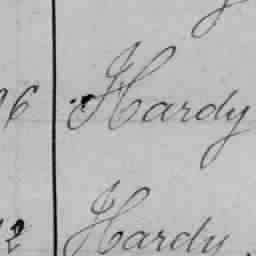 6 Hardy
2 Hardy.